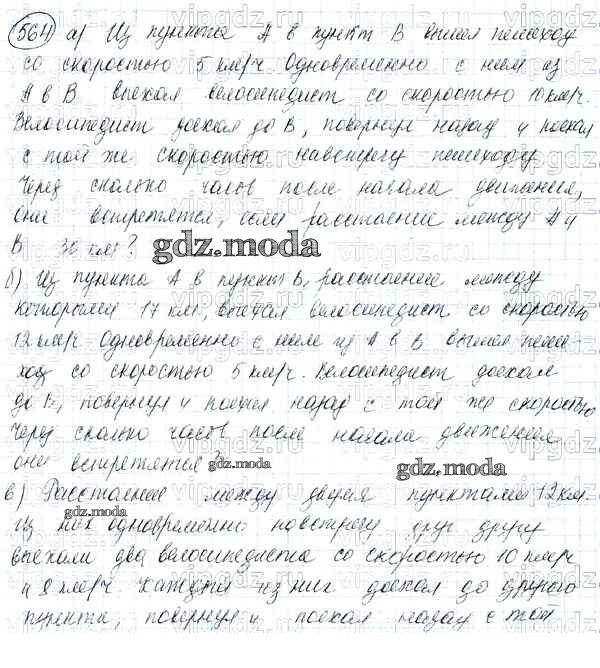 564 а) Из пункта А в пункт В вышел пешеход
со скоростью 5 км/ч. Одновременно с ним из
А в В выехал велосипедист со скоростью 10 км/ч.
Велосипедист доехал до В, повернул назад и поехал
с той же скоростью навстречу пешеходу.
Через сколько часов после начала движения,
они встретятся, если расстояние между А и
В 30 км?
gdz.moda
б) Из пункта А в пункт В, расстояние между
которыми 17 км, выехал велосипедист со скоростью
12 км/ч. Одновременно с ним из А в В вышел пеше-
ход со скоростью 5 км/ч. Велосипедист доехал
до В, повернул и поехал назад с той же скоростью
Через сколько часов после начала движения
они встретятся?
gdz.moda
gdz.moda
в) Расстояние между двумя пунктами 12 км
gdz.moda
Из них одновременно навстречу друг другу
выехали два велосипедиста со скоростью 10 км/ч
и 8 км/ч. Каждый из них доехал до другого
пункта, повернул и поехал назад с той